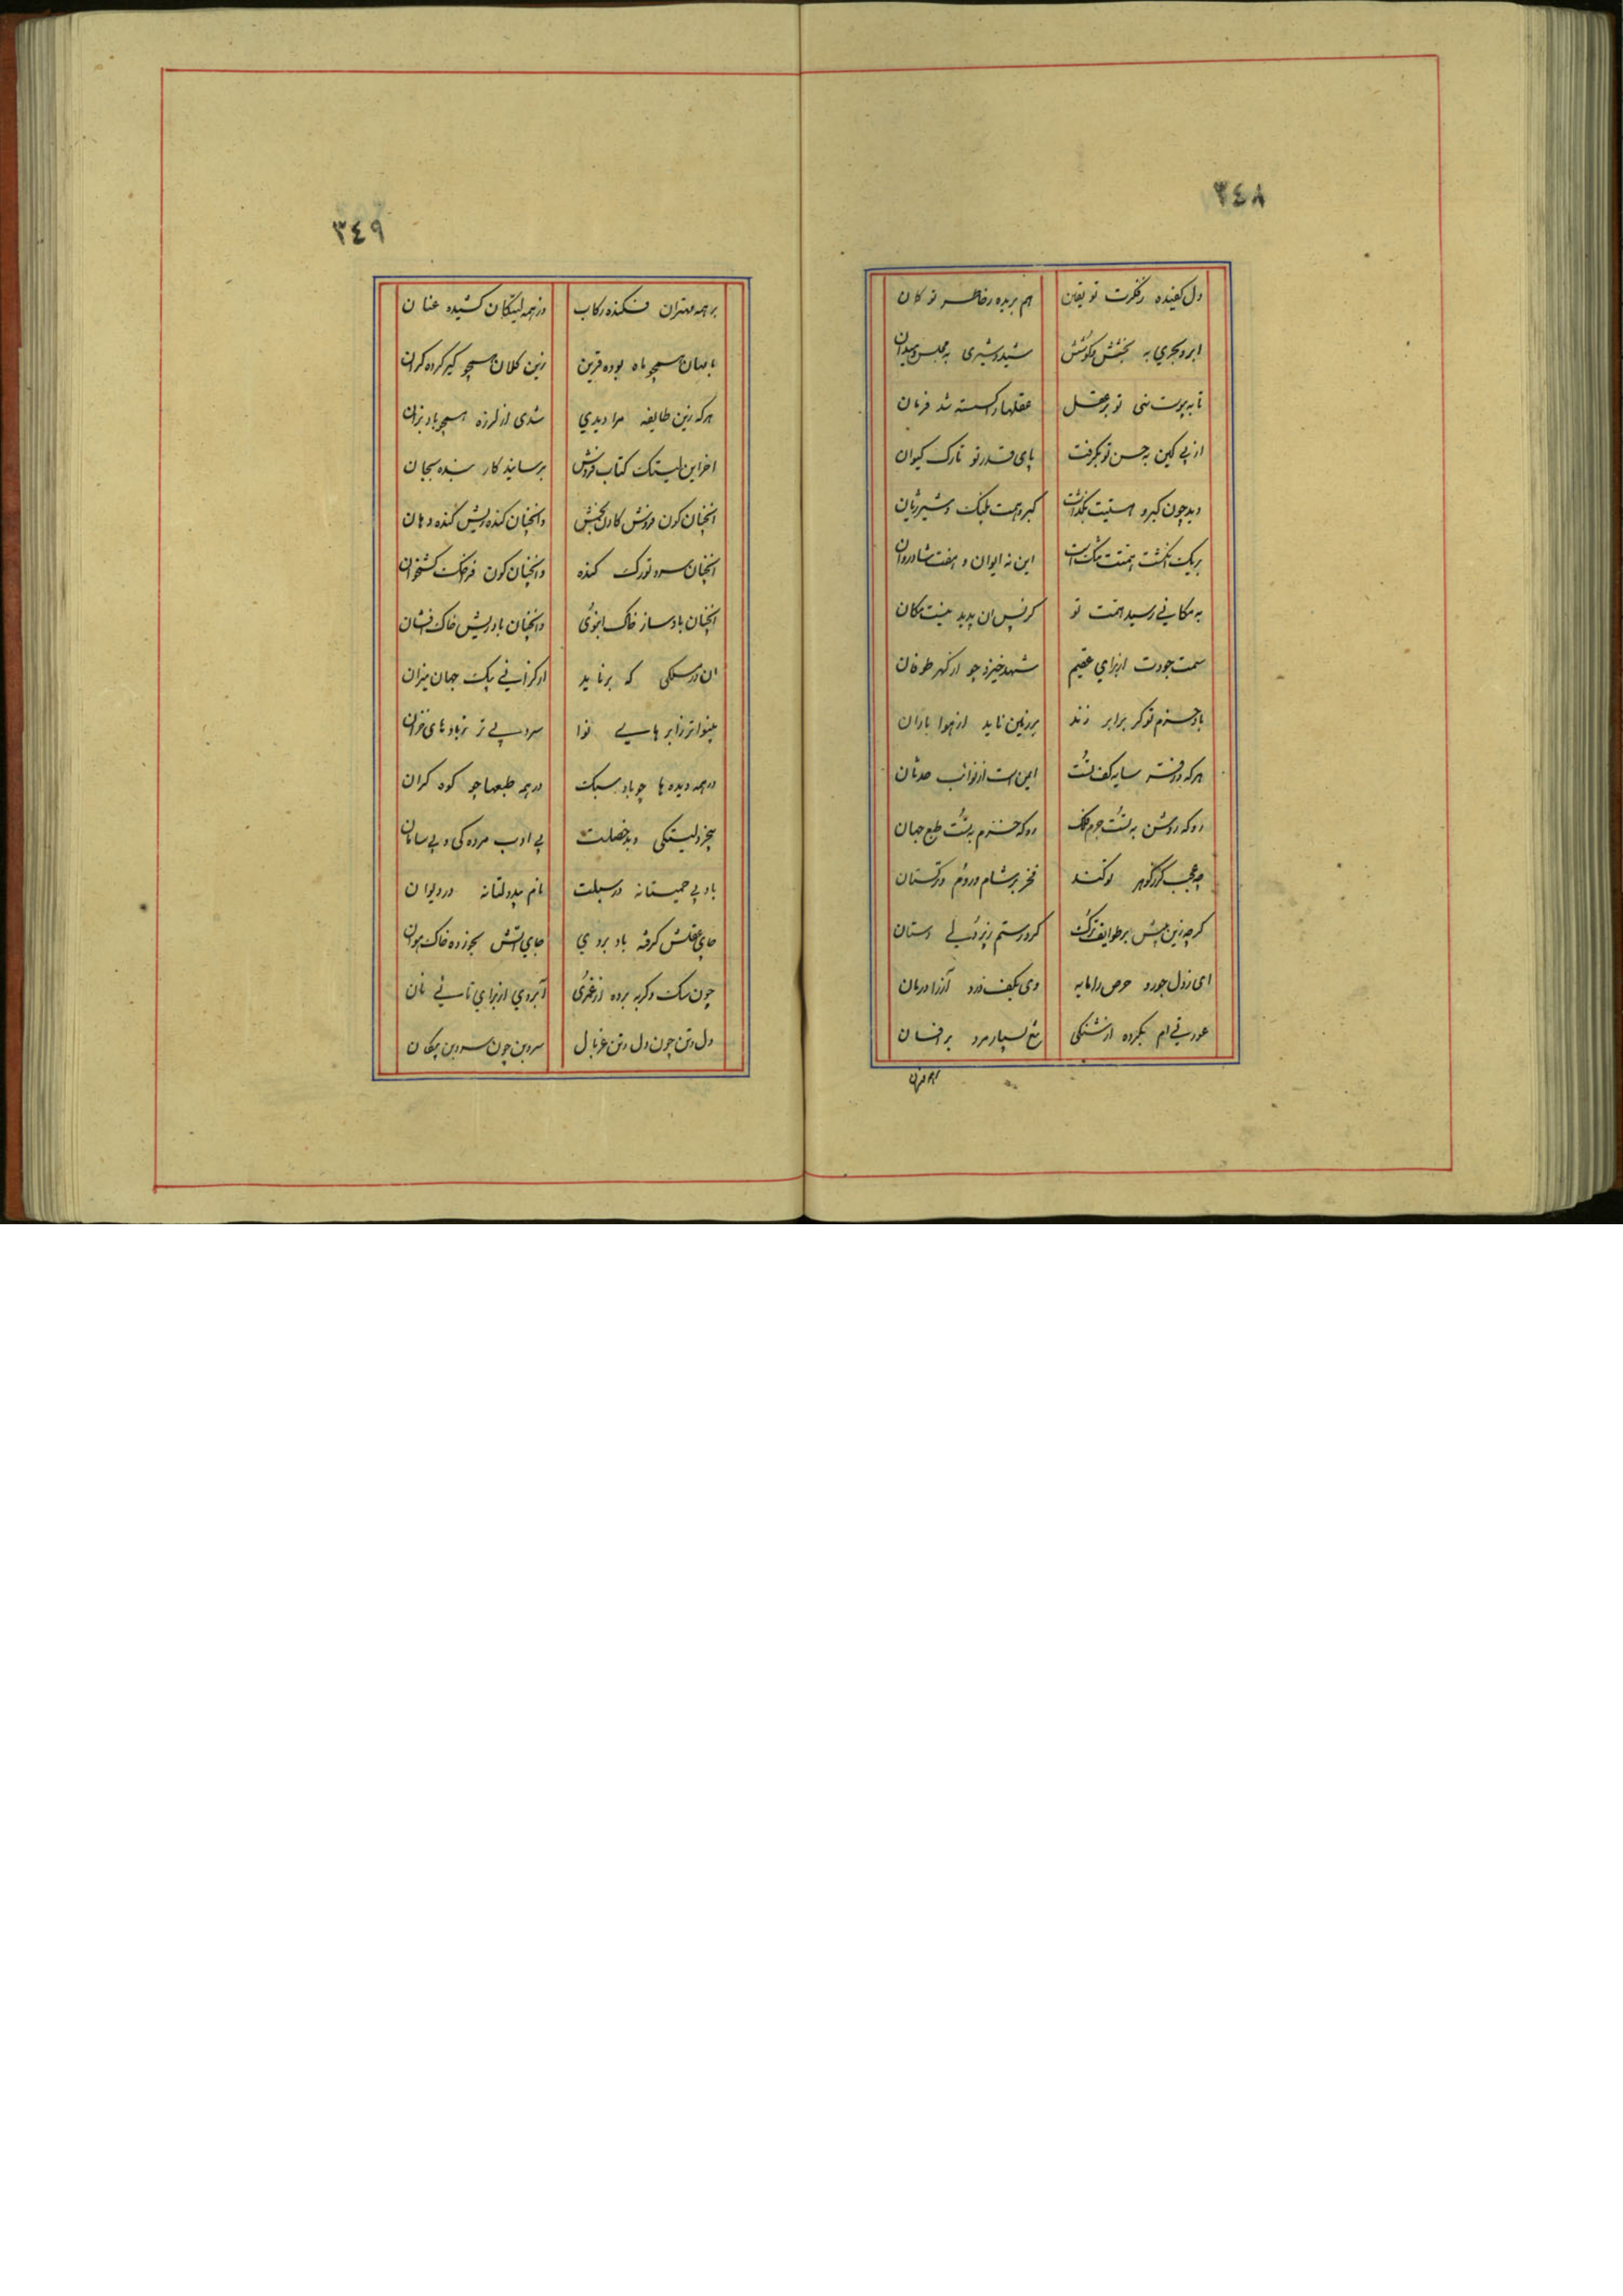 ٣٤٨
دل کفیده ز فکرت تو یقین هم بریده ز خاطر تو کان
ابر و بحری به بخشش و کوشش شید و شیری به مجلس و میدان
تا به پوست نهی تو بر عقل عقلها را گسسته شد فرمان
از پی کین به حس تو بگرفت پای قدر تو تارک کیوان
دید چون کبر و همتیت بگذاشت کبر و همت پلنگ و شیر ژیان
بر یک انگشت همتت تنگ است این نه ایوان و هفت شادروان
به مکانی رسید همت تو کز پس آن پدید نیست مکان
سمت جودت از برای عقیم شهد خیزد چو از گهر طوفان
باد حزم تو گر برابر زند بر زمین ناید از هوا باران
هر که در سایه کف تست ایمن است از نوائب حدثان
رو که روشن به تست جرم فلک رو که خرم به تست طبع جهان
چه عجب گر ز گوهر تو کند فخر بر شام و روم ترکستان
گرچه زین پیش بر طوایف ترک کرد رستم ز پردلی دستان
ای ز دل جود و حرص را مایه وی بکف درد آز را درمان
عورتی ام بکرده از شنگی تیغ بسپار مرد بر افسان
٣٤٩
بر همه مهتران فکنده رکاب وز همه لیتکان کشیده عنان
با مهان همچو ماه بوده قرین زین کلان همچو گیر کرده کران
هرکه زین طایفه مرا دیدی شدی از لرزه همچو باد بزان
آخر این لیتک کتاب فروش برسانید کار بنده بجان
آنچنان کون فروش کادن بخش وانچنان کنده ریش گنده دهان
آنچنان سرد تورک کنده وانچنان کون فراخک کشخان
آنچنان باد ساز خاک انبوی وانچنان باد ریش خاک افشان
آن در سبکی که برناید از گرانی بیک جهان میزان
بینواتر ز ابرهای بی نوا سرد پی تر ز بادهای خزان
در همه دیده ها چو باد سبک در همه طبعها چو کوه گران
بیخرد لیتکی و بد خصلت بی ادب مردکی و بی سامان
باد بی حمیتانه در سبلت نام بیدولتانه در دیوان
جای عقلش گرفته باد بروی جای آتش بجو زده خاک هوان
چون سگ و گربه برده از غمری آبروی از برای تا نی نان
دل و تن چون دل و تن غربال سر و بن چون سر و بن پنگان